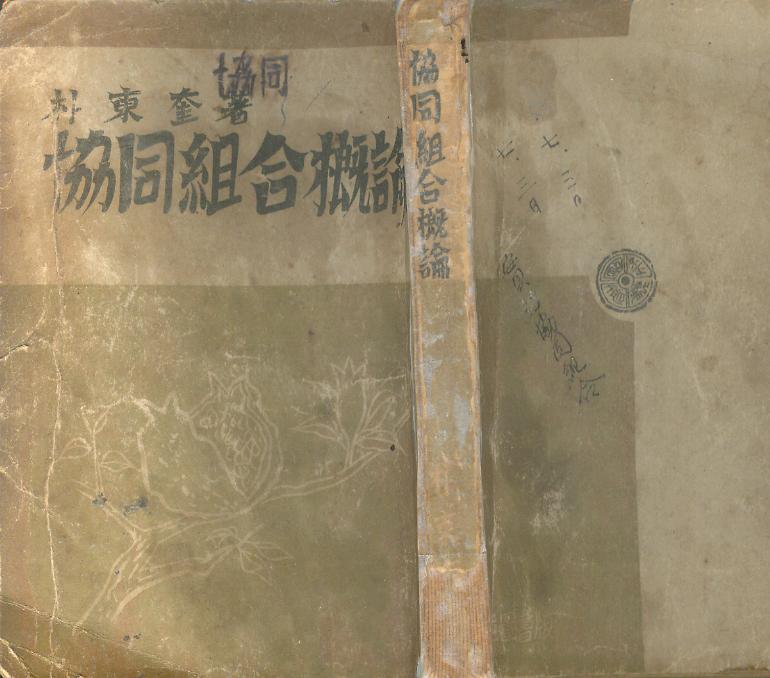 協同
朴東奎著
協同組合概論
協同組合概論
七. 七.
協同組合